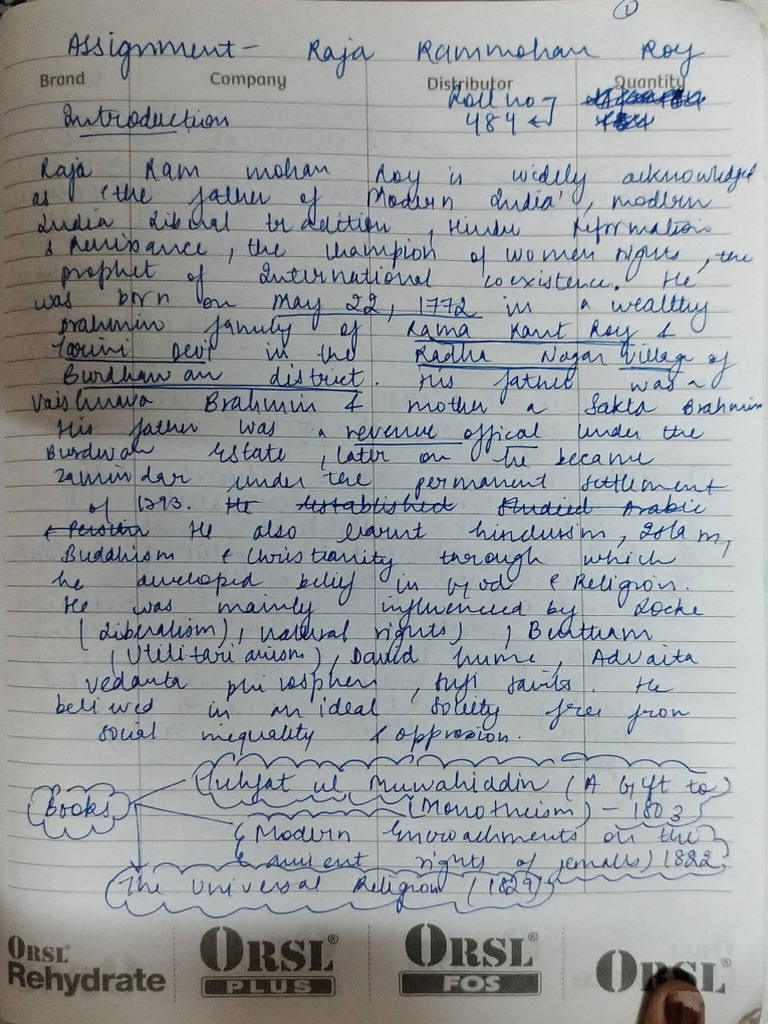 1
Assignment - Raja Rammohan Roy
Brand Company Distributor Quantity
Roll no →
Introduction 484 ←
Raja Ram mohan Roy is widely acknowledged
as 'the father of Modern India', modern
India Liberal tradition, Hindu Reformation
& Renissance, the champion of women rights, the
prophet of International coexistence. He
was born on May 22, 1772 in a wealthy
Brahmin family of Rama Kant Roy &
Tarini Devi in the Radha Nagar Village of
Burdhawan district. His father was a
Vaishnava Brahmin & mother a Sakta Brahmin
His father was a revenue offical under the
Burdwan Estate, later on he became
zamindar under the permanent settlement
of 1793. He established Studied Arabic
& Persian He also learnt hinduism, Islam,
Buddhism & Christianity through which
he developed belief in God & Religion.
He was mainly influenced by Locke
(Liberalism), natural rights), Bentham
(Utilitarianism), David hume, Advaita
vedanta philosopher, sufi saints. He
believed in an ideal society free from
social inequality & oppression.
Books
Tuhfat ul Muwahiddin (A Gift to
(Monotheism) - 1803
(Modern Encroachments on the
ancient rights of females) 1822
The Universal Religion (1829)
ORSL® Rehydrate
ORSL® PLUS
ORSL® FOS
ORSL®